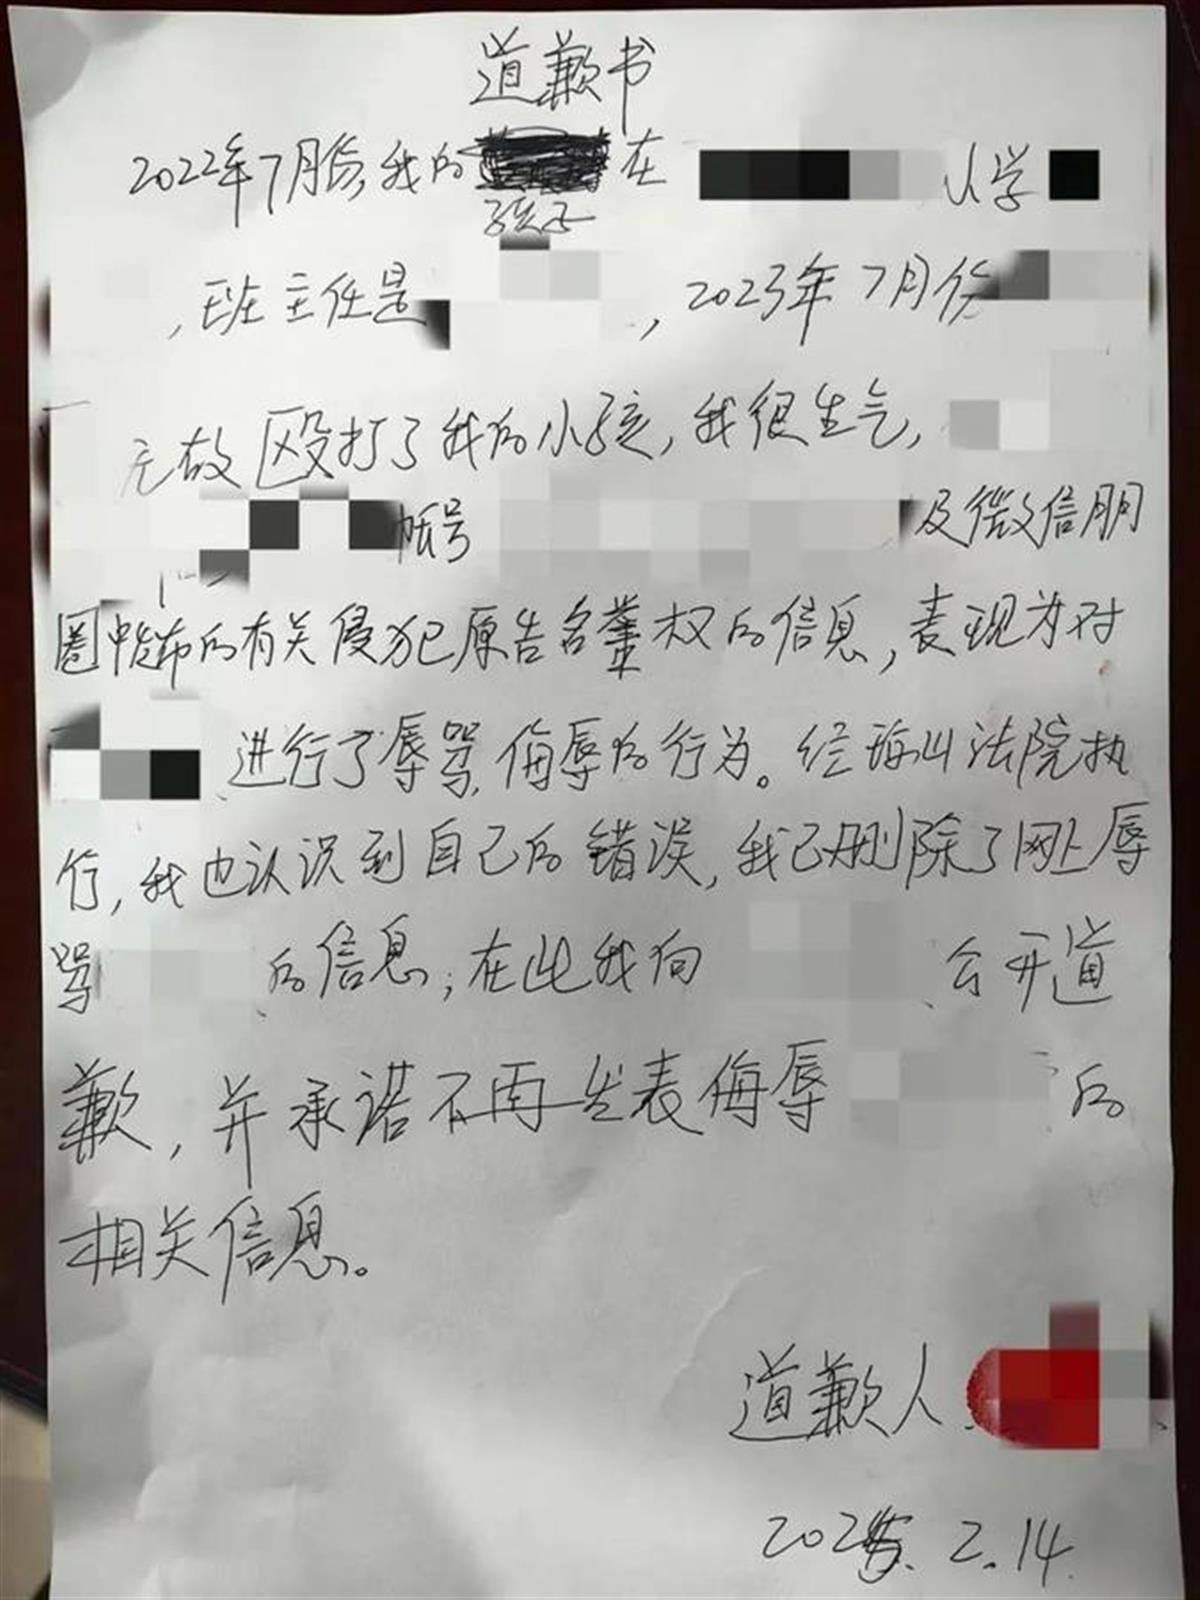 道歉书
2022年7月份,我的 在 小学
孩子
,班主任是 ,2023年7月份
无故殴打了我的小孩,我很生气,
帐号 及微信朋
圈中发布的有关侵犯原告名誉权的信息,表现为对
进行了辱骂,侮辱的行为。经 山法院执
行,我也认识到自己的错误,我已删除了网上辱
骂 的信息;在此我向 公开道
歉,并承诺不再发表侮辱 的
相关信息。
道歉人
2025.2.14